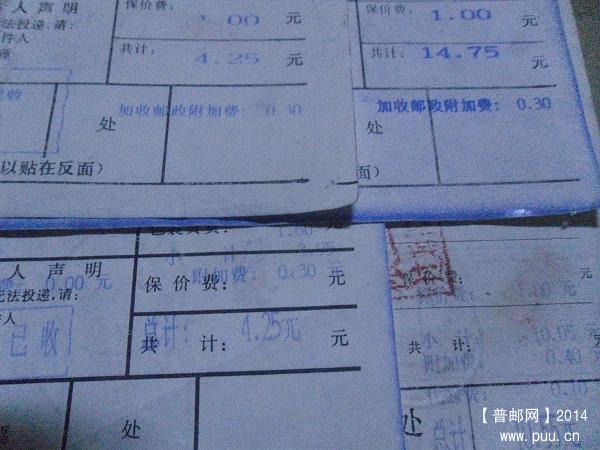 人声明
法投递,请:
件人
理
保价费: 1.00 元
共计: 4.25 元
已收
处
加收邮政附加费: 0.30
以贴在反面)
保价费: 1.00
共计: 14.75 元
加收邮政附加费: 0.30
处
面)
小 计
附加费: 0.30 元
人 声 明
0.00 元
无法投递,请:
件人
已收
保 价 费: 元
总计: 4.25元
共 计: 元
处
保 价 费: 元
1.00 元
小 计: 10.05
共 计:
附加费: 0.40
0.10
总计:
处
【普邮网】2014
www.puu.cn